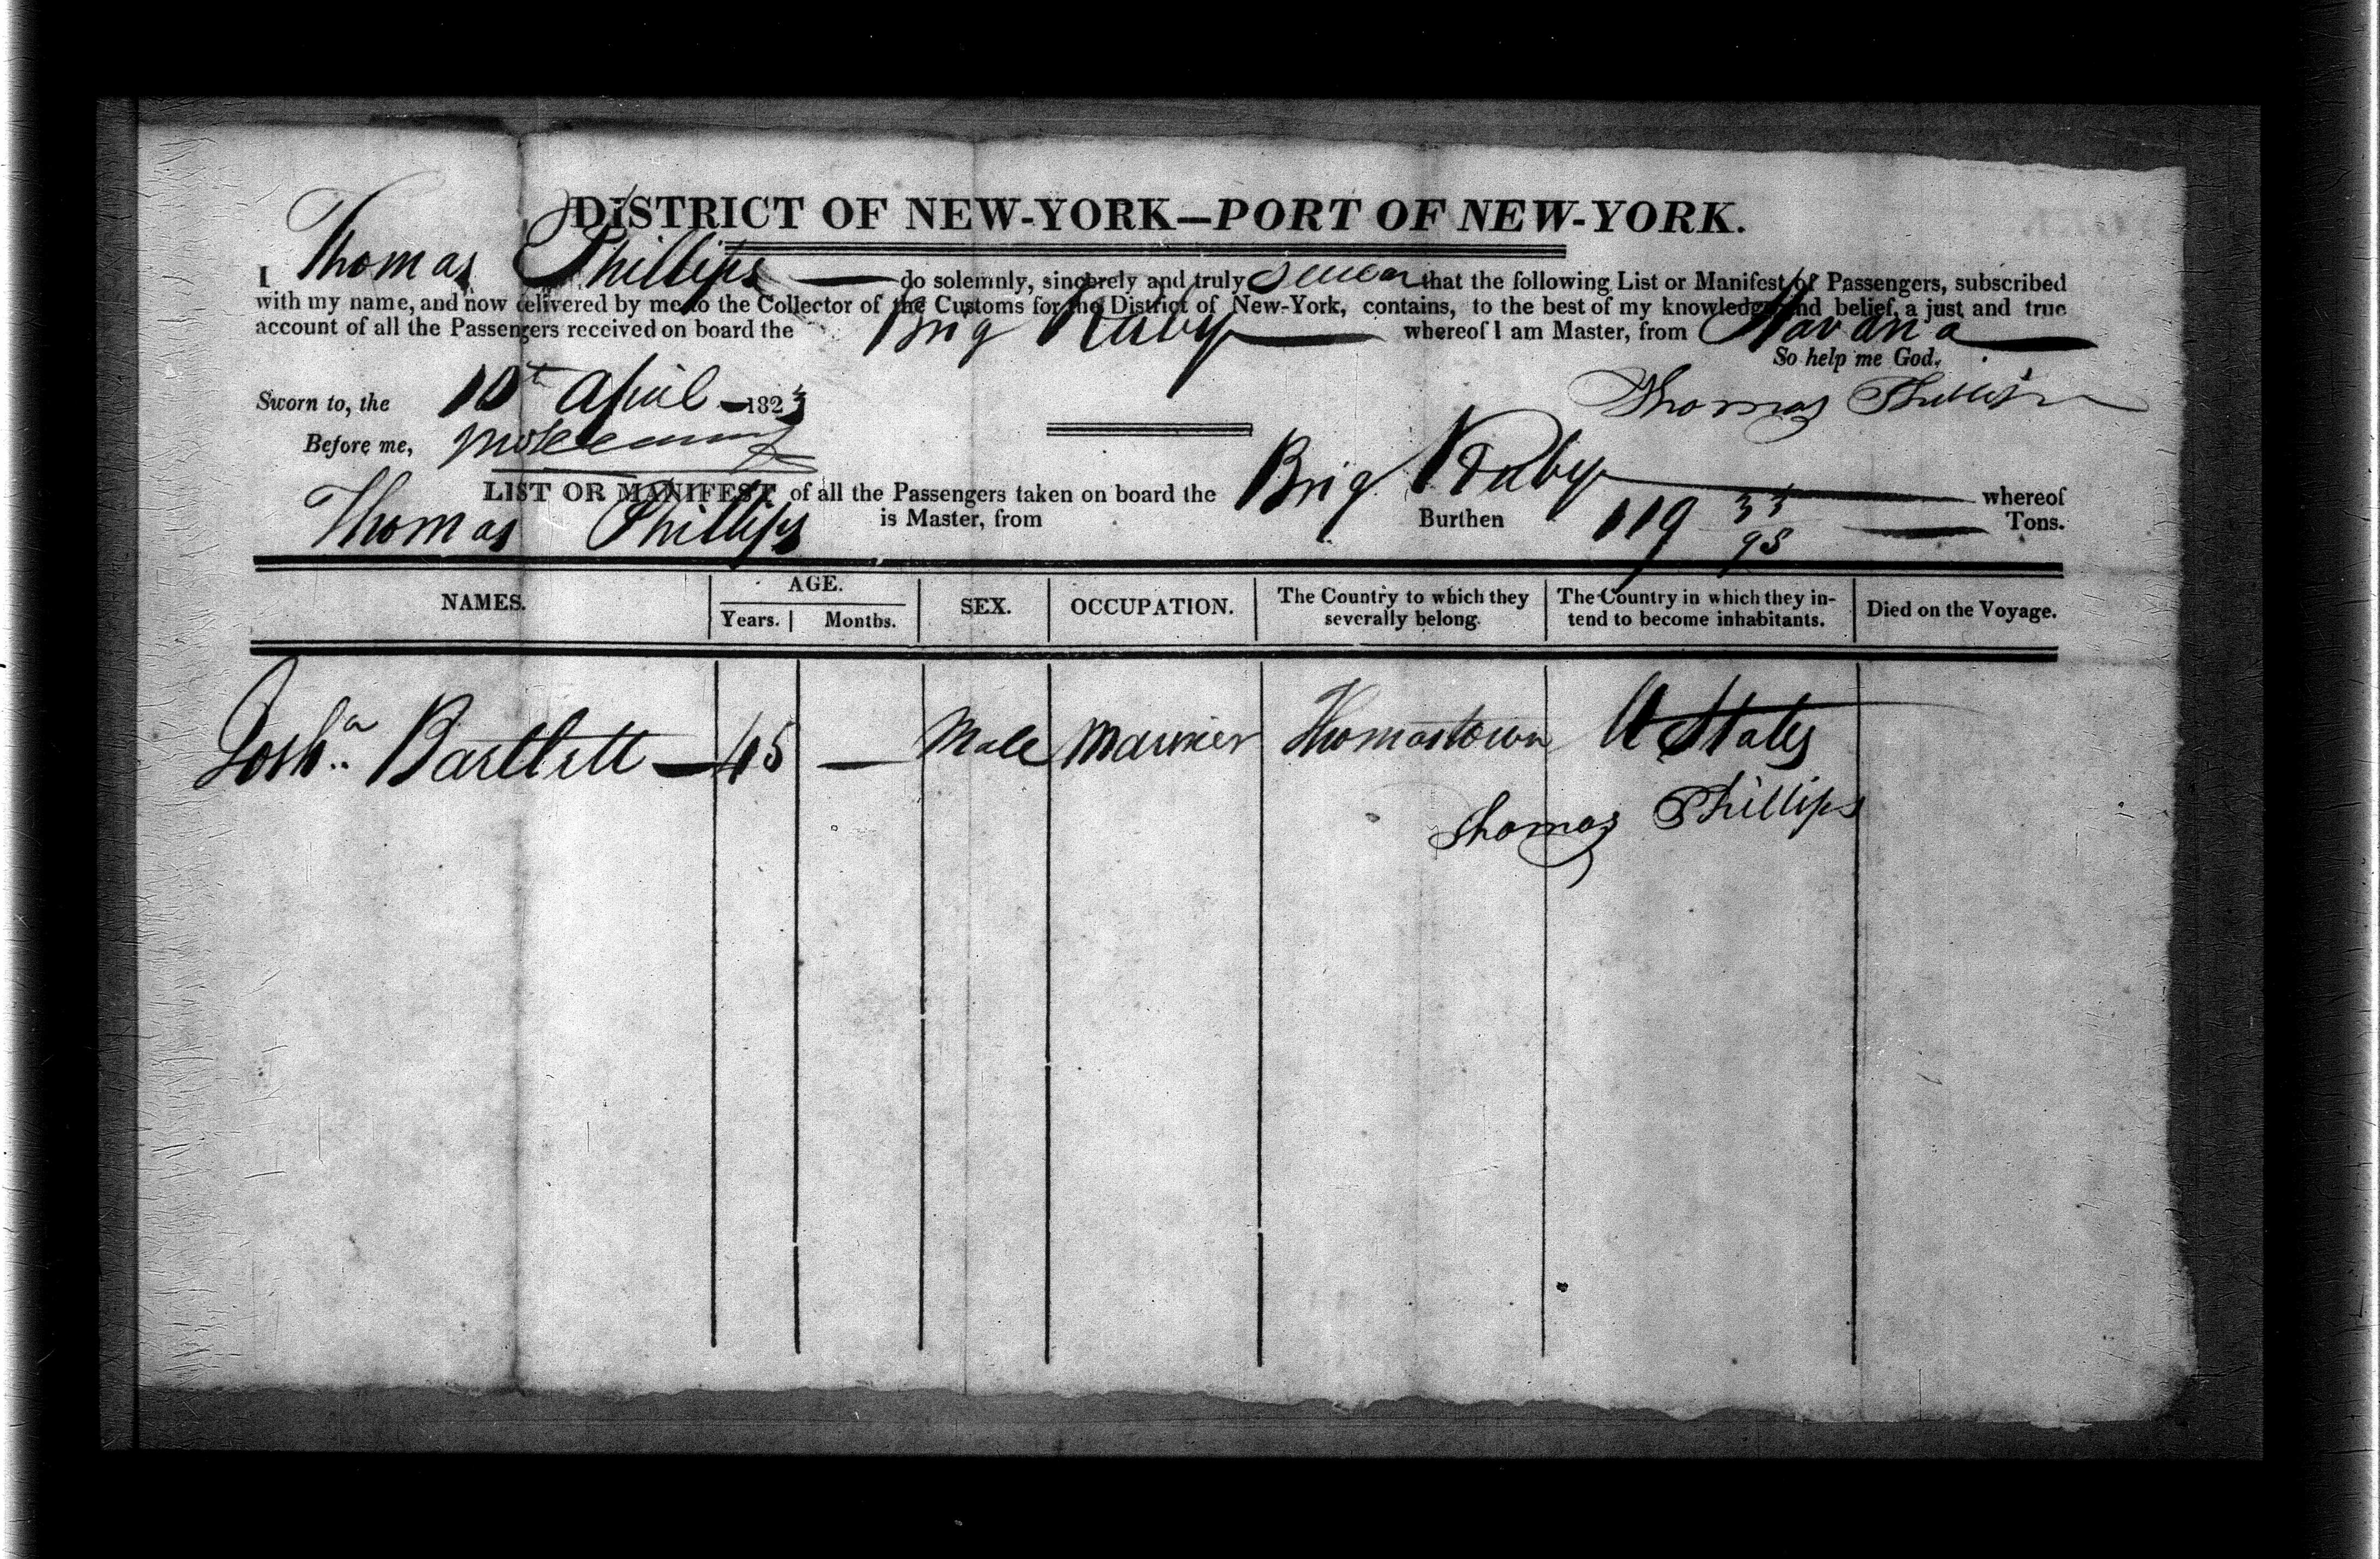 DISTRICT OF NEW-YORK—PORT OF NEW-YORK.
I Thomas Phillips do solemnly, sincerely and truly swear that the following List or Manifest of Passengers, subscribed
with my name, and now delivered by me to the Collector of the Customs for the District of New-York, contains, to the best of my knowledge and belief, a just and true
account of all the Passengers received on board the Brig Ruby whereof I am Master, from Havana
So help me God.
Sworn to, the 10th April 1823
Thomas Phillips
Before me,
LIST OR MANIFEST of all the Passengers taken on board the Brig Ruby whereof
Thomas Phillips is Master, from Burthen 119 33/95 Tons.
NAMES. AGE. SEX. OCCUPATION. The Country to which they severally belong. The Country in which they in-tend to become inhabitants. Died on the Voyage.
Years. Months.
Josha Bartlett — 45 — Male Mariner Thomastown U States
Thomas Phillips